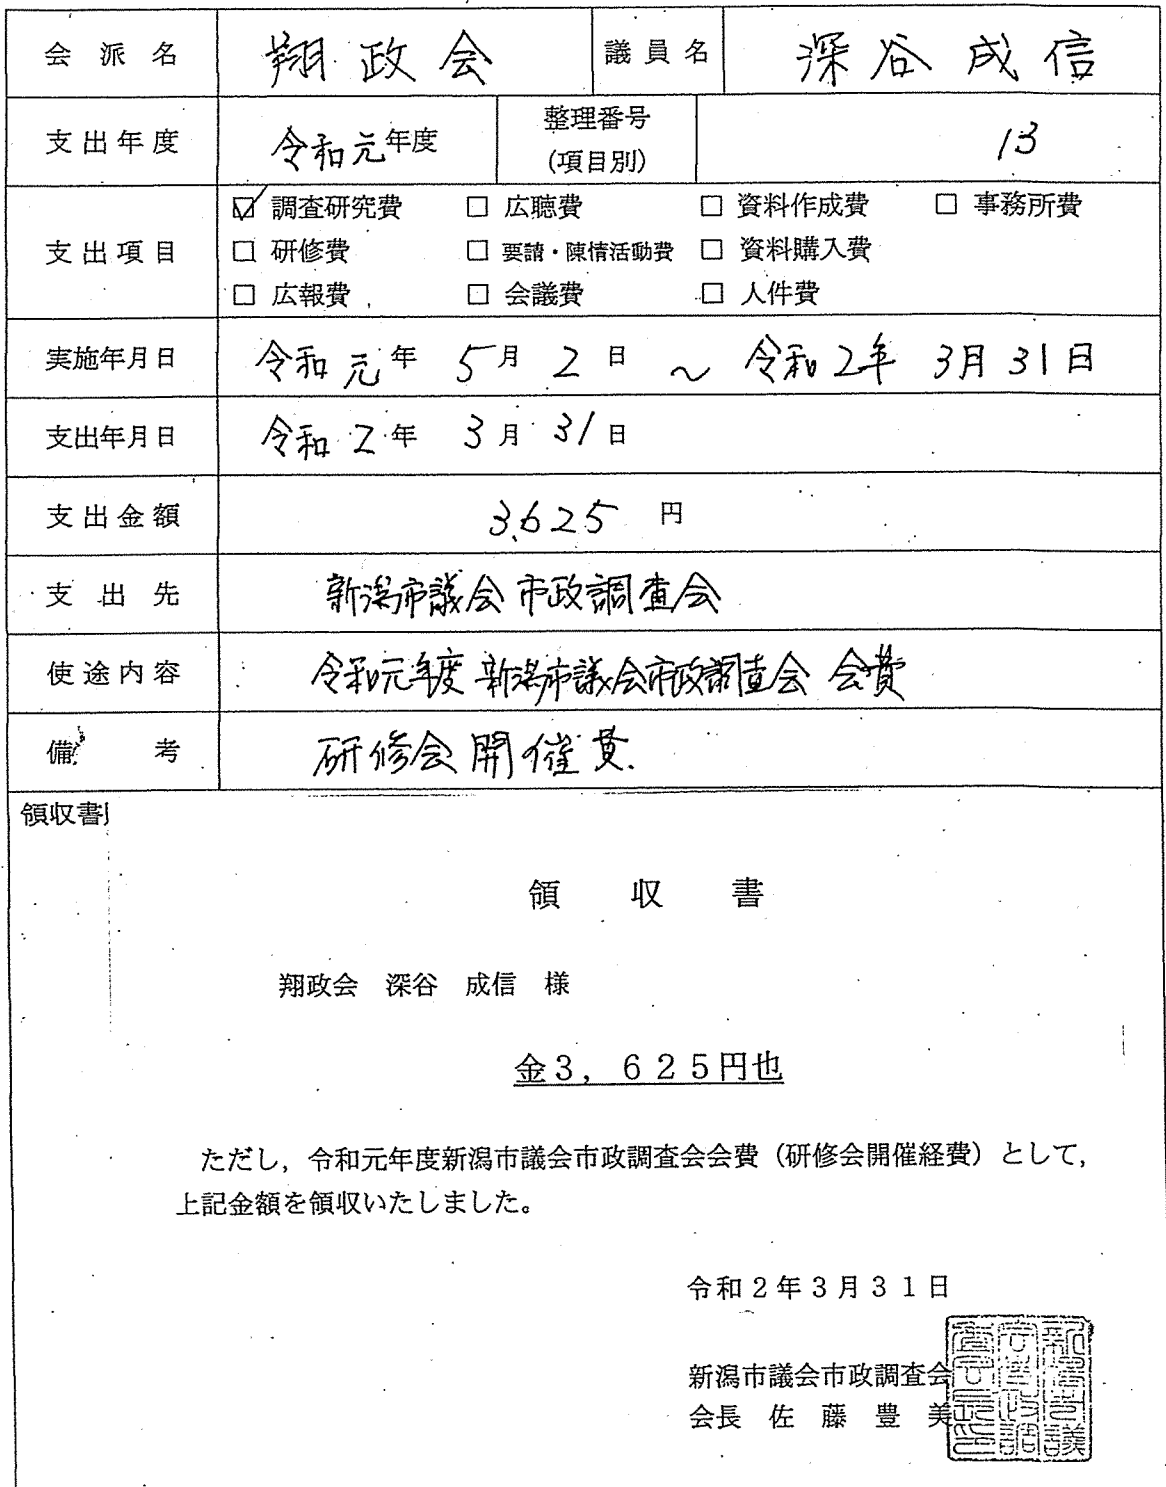 会派名 翔政会 議員名 深谷成信
支出年度 令和元年度 整理番号(項目別) 13
支出項目 ☑ 調査研究費 □ 広聴費 □ 資料作成費 □ 事務所費
□ 研修費 □ 要請・陳情活動費 □ 資料購入費
□ 広報費 □ 会議費 □ 人件費
実施年月日 令和元年5月2日 ～ 令和2年3月31日
支出年月日 令和2年3月31日
支出金額 3,625 円
支出先 新潟市議会市政調査会
使途内容 令和元年度新潟市議会市政調査会 会費
備考 研修会開催費.
領収書
領収書
翔政会 深谷 成信 様
金3，625円也
ただし，令和元年度新潟市議会市政調査会会費（研修会開催経費）として，
上記金額を領収いたしました。
令和2年3月31日
新潟市議会市政調査会
会長 佐藤豊美